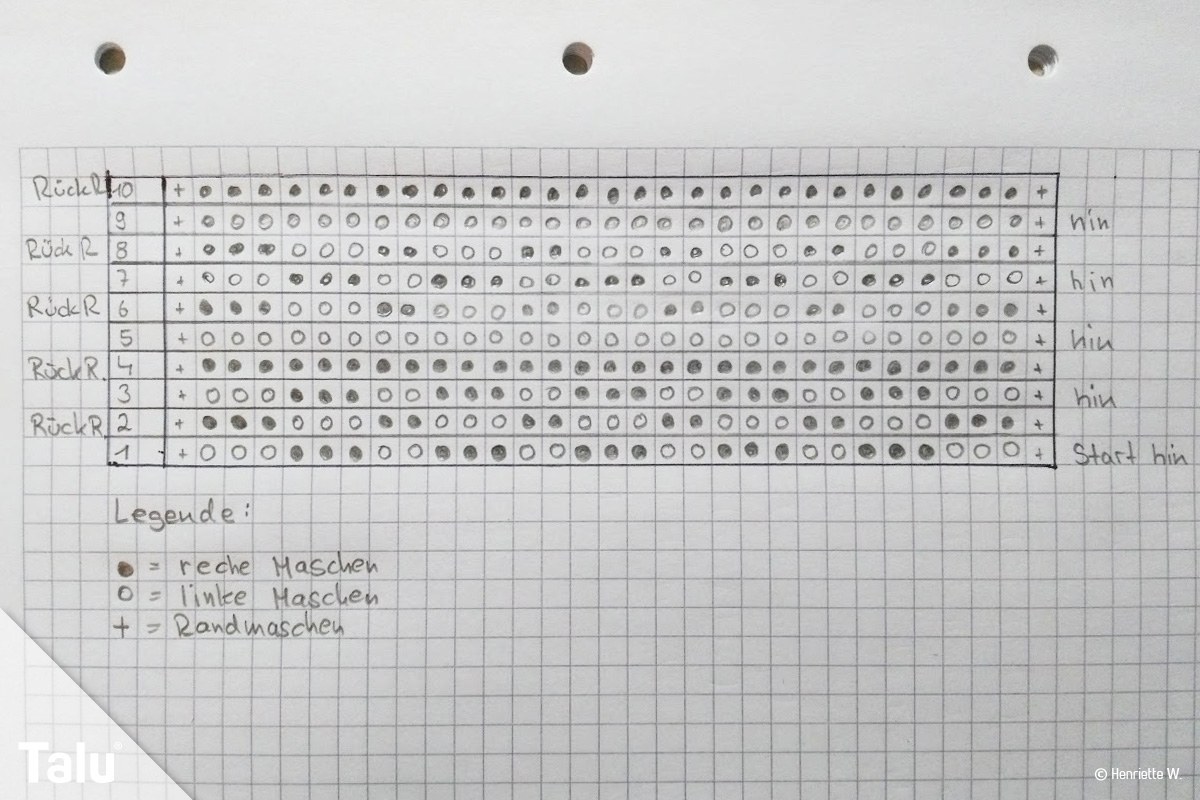 RückR 10 + ● ● ● ● ● ● ● ● ● ● ● ● ● ● ● ● ● ● ● ● ● ● ● ● ● ● ● ● ● +
9 + ○ ○ ○ ○ ○ ○ ○ ○ ○ ○ ○ ○ ○ ○ ○ ○ ○ ○ ○ ○ ○ ○ ○ ○ ○ ○ ○ ○ ○ + hin
Rück R 8 + ● ● ● ○ ○ ○ ● ● ○ ○ ○ ● ● ○ ○ ○ ● ● ○ ○ ○ ● ● ○ ○ ○ ● ● ● +
7 + ○ ○ ○ ● ● ● ○ ○ ● ● ● ○ ○ ● ● ● ○ ○ ● ● ● ○ ○ ● ● ● ○ ○ ○ + hin
Rück R 6 + ● ● ● ○ ○ ○ ● ● ○ ○ ○ ● ● ○ ○ ○ ● ● ○ ○ ○ ● ● ○ ○ ○ ● ● ● +
5 + ○ ○ ○ ○ ○ ○ ○ ○ ○ ○ ○ ○ ○ ○ ○ ○ ○ ○ ○ ○ ○ ○ ○ ○ ○ ○ ○ ○ ○ + hin
RückR. 4 + ● ● ● ● ● ● ● ● ● ● ● ● ● ● ● ● ● ● ● ● ● ● ● ● ● ● ● ● ● +
3 + ○ ○ ○ ● ● ● ○ ○ ● ● ● ○ ○ ● ● ● ○ ○ ● ● ● ○ ○ ● ● ● ○ ○ ○ + hin
RückR. 2 + ● ● ● ○ ○ ○ ● ● ○ ○ ○ ● ● ○ ○ ○ ● ● ○ ○ ○ ● ● ○ ○ ○ ● ● ● +
1 + ○ ○ ○ ● ● ● ○ ○ ● ● ● ○ ○ ● ● ● ○ ○ ● ● ● ○ ○ ● ● ● ○ ○ ○ + Start hin
Legende:
● = reche Maschen
○ = linke Maschen
+ = Randmaschen
Talu
© Henriette W.